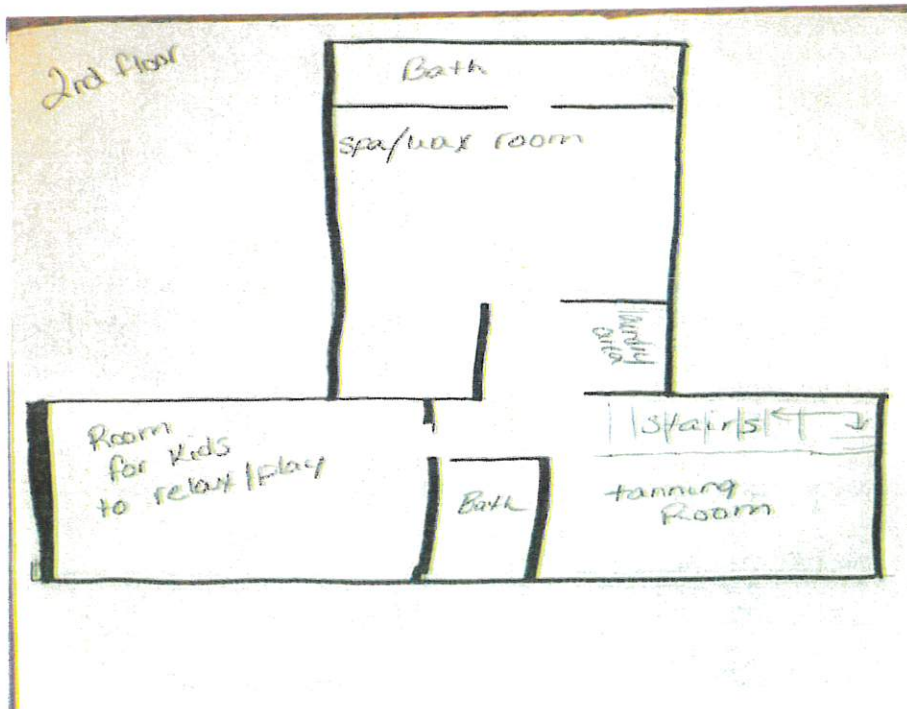 2nd floor
Bath
spa/wax room
laundry
area
Room
for Kids
to relax/play
stairs
Bath
tanning
Room